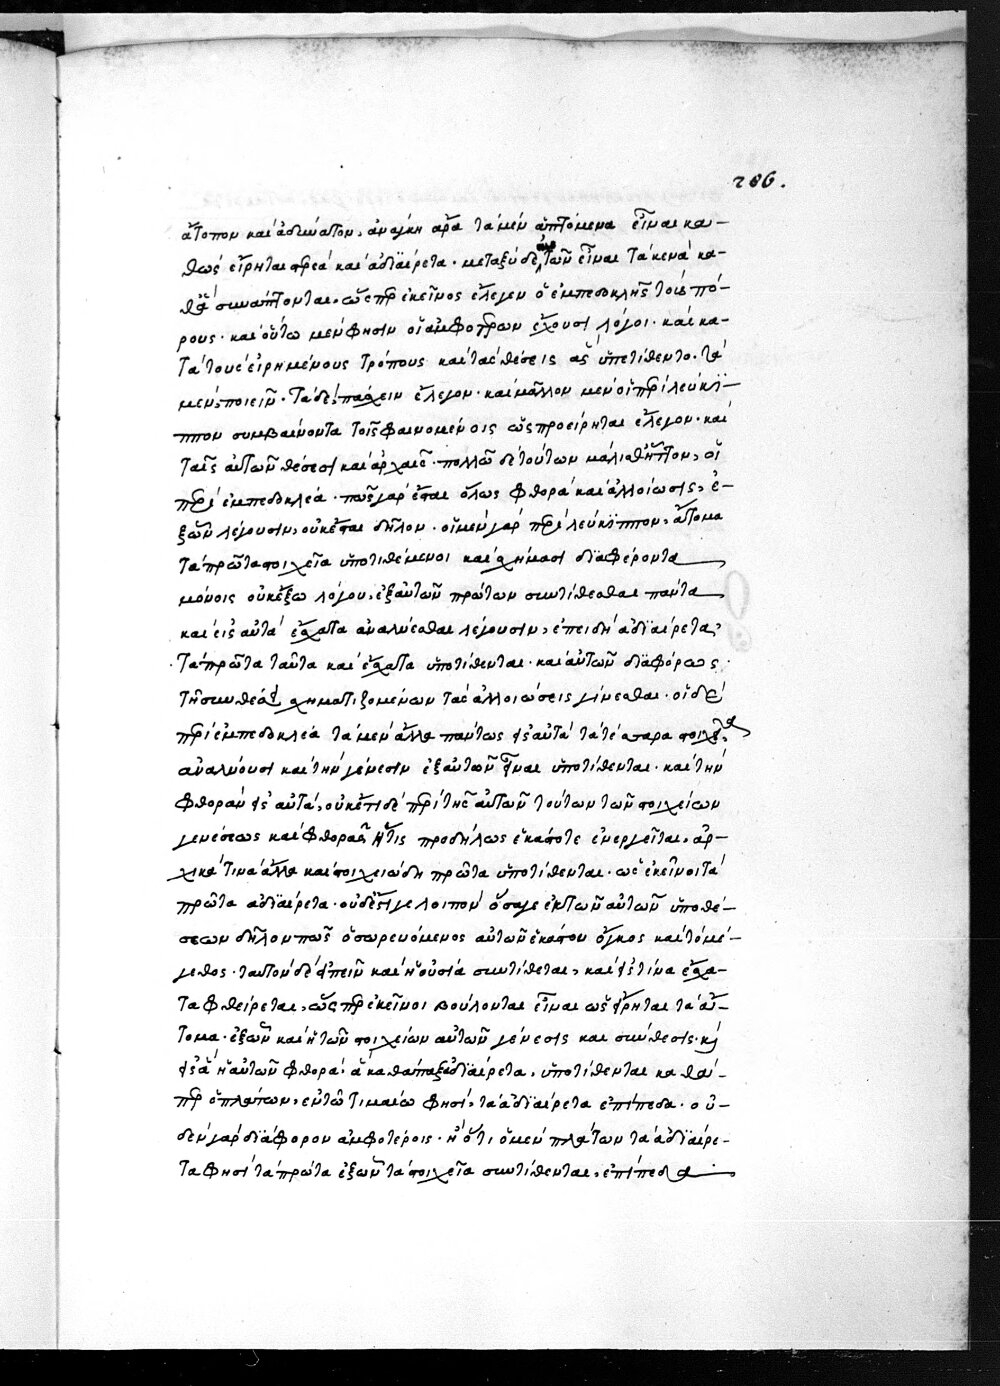 286.
ἄτοπον καὶ ἀδύνατον, ἀνάγκη ἄρα τὰ μὲν ἁπτόμενα εἶναι κα-
θὼς εἴρηται στερεὰ καὶ ἀδϊαίρετα. μεταξὺ δὲ τῶν εἶναι τὰ κενὰ κα-
θὸ συνάπτονται, ὥσπερ ἐκεῖνος ἔλεγεν ὁ ἐμπεδοκλῆς τοὺς πό-
ρους. καὶ οὕτω μὲν φησὶν οἱ ἀμφοτέρων ἔχουσι λόγοι. καὶ κα-
τὰ τοὺς εἰρημένους τρόπους καὶ τὰς θέσεις ἃς ὑπετίθεντο. τὰ
μὲν, ποιεῖν. τὰ δὲ, πάσχειν ἔλεγον. καὶ μᾶλλον μὲν οἱ περὶ λεύκϊπ-
πον συμβαίνοντα τοῖς φαινομένοις ὡς προείρηται ἔλεγον. καὶ
ταῖς αὐτῶν θέσεσι καὶ ἀρχαῖς. πολλῶ δὲ τούτων μάλισθ' ἧττον, οἱ
περὶ ἐμπεδοκλέα. πῶς γὰρ ἔσται ὅλως φθορὰ καὶ ἀλλοίωσις, ἐ-
ξ ὧν λέγουσιν, οὐκ ἔσται δῆλον. οἱ μὲν γὰρ περὶ λεύκϊππον, ἄτομα
τὰ πρῶτα στοιχεῖα ὑποτιθέμενοι καὶ σχήμασι δϊαφέροντα
μόνοις οὐκ ἔξω λόγου, ἐξ αὐτῶν πρώτων συντίθεσθαι πάντα
καὶ εἰς αὐτὰ ἔσχατα ἀναλύεσθαι λέγουσιν, ἐπειδὴ ἀδϊαίρετα,
τὰ πρῶτα ταῦτα καὶ ἔσχατα ὑποτίθενται. καὶ αὐτῶν δϊαφόρως
τῆ συνθέσει σχηματιζομένων τὰς ἀλλοιώσεις γίνεσθαι. οἱ δὲ
περὶ ἐμπεδοκλέα τὰ μὲν ἄλλα πάντως εἰς αὐτὰ τὰ τέσσαρα στοιχεῖα
ἀναλύουσι καὶ τὴν γένεσιν ἐξ αὐτῶν εἶναι ὑποτίθενται. καὶ τὴν
φθορὰν εἰς αὐτὰ, οὐκ ἔτι δὲ περὶ τῆς αὐτῶν τούτων τῶν στοιχείων
γενέσεως καὶ φθορᾶς ἥτις προδήλως ἑκάστοτε ἐνεργεῖται, ἀρ-
χικά τινα ἄλλα καὶ στοιχειώδη πρῶτα ὑποτίθενται. ὡς ἐκεῖνοι τὰ
πρῶτα ἀδϊαίρετα. οὐδ' ἔστι γε λοιπὸν ὅσα γε ἐκ τῶν αὐτῶν ὑποθέ-
σεων δῆλον πῶς ὁ σωρευόμενος αὐτῶν ἑκάστου ὄγκος καὶ τὸ μέ-
γεθος. ταυτὸν δ' εἰπεῖν καὶ ἡ οὐσία συντίθεται, καὶ εἰς τίνα ἔσχα-
τα φθείρεται, ὥσπερ ἐκεῖνοι βούλονται εἶναι ὡς εἴρηται τὰ ἄ-
τομα. ἐξ ὧν καὶ ἡ τῶν στοιχείων αὐτῶν γένεσις καὶ σύνθεσις. καὶ
εἰς ἃ ἡ αὐτῶν φθορά. ἃ καθάπαξ ἀδϊαίρετα, ὑποτίθενται καθά-
περ ὁ πλάτων, ἐν τῶ τιμαίω φησὶ, τὰ ἀδϊαίρετα ἐπίπεδα. οὐ-
δὲν γὰρ δϊάφορον ἀμφοτέροις. ἢ ὅτι ὁ μὲν πλάτων τὰ ἀδϊαίρε-
τα φησὶ τὰ πρῶτα ἐξ ὧν τὰ στοιχεῖα συντίθενται, ἐπίπεδα